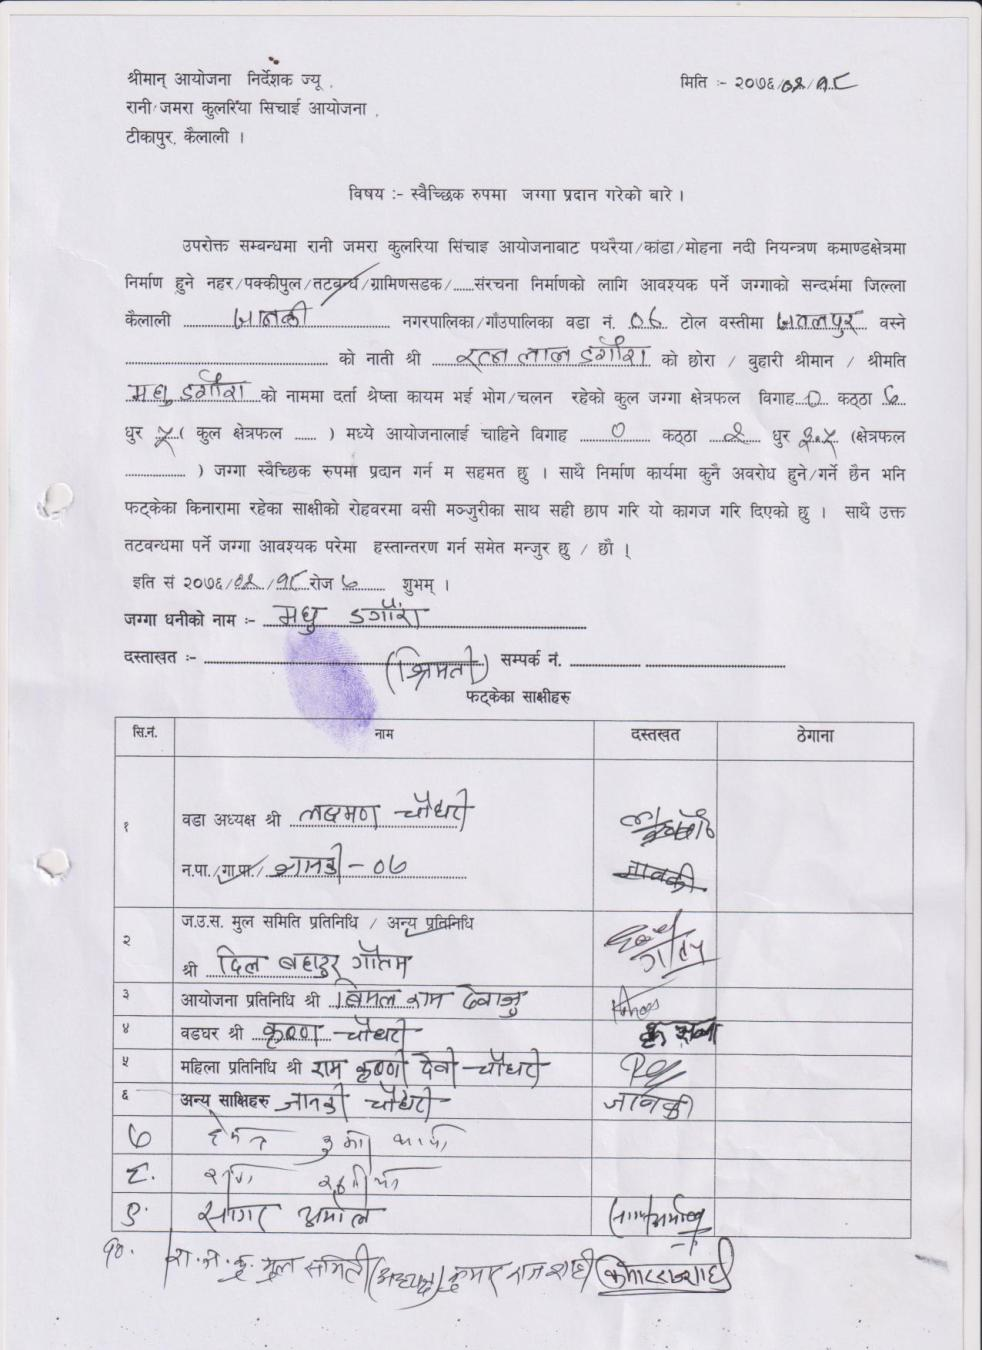 श्रीमान् आयोजना निर्देशक ज्यू ,
मिति :- २०७६/०२/१८
रानी/जमरा कुलरिया सिचाई आयोजना ,
टीकापुर, कैलाली ।
विषय :- स्वैच्छिक रुपमा जग्गा प्रदान गरेको बारे ।
उपरोक्त सम्बन्धमा रानी जमरा कुलरिया सिंचाइ आयोजनाबाट पथरैया/कांडा/मोहना नदी नियन्त्रण कमाण्डक्षेत्रमा
निर्माण हुने नहर/पक्कीपुल/तटबन्ध/ग्रामिणसडक/......संरचना निर्माणको लागि आवश्यक पर्ने जग्गाको सन्दर्भमा जिल्ला
कैलाली जानकी नगरपालिका/गाँउपालिका वडा नं. ०७ टोल वस्तीमा वस्ने
को नाती श्री रत्न लाल डगौरा को छोरा / बुहारी श्रीमान / श्रीमति
मधु डगौरा को नाममा दर्ता श्रेष्ता कायम भई भोग/चलन रहेको कुल जग्गा क्षेत्रफल विगाह ० कठ्ठा ७
धुर ५ ( कुल क्षेत्रफल ...... ) मध्ये आयोजनालाई चाहिने विगाह ० कठ्ठा २ धुर (क्षेत्रफल
) जग्गा स्वैच्छिक रुपमा प्रदान गर्न म सहमत छु । साथै निर्माण कार्यमा कुनै अवरोध हुने/गर्ने छैन भनि
फट्केका किनारामा रहेका साक्षीको रोहवरमा वसी मञ्जुरीका साथ सही छाप गरि यो कागज गरि दिएको छु । साथै उक्त
तटवन्धमा पर्ने जग्गा आवश्यक परेमा हस्तान्तरण गर्न समेत मन्जुर छु / छौ ।
इति सं २०७६/०२/१८ रोज ७ शुभम् ।
जग्गा धनीको नाम :- मधु डगौरा
दस्ताखत :- (श्रिमती) सम्पर्क नं.
फट्केका साक्षीहरु
सि.नं. नाम दस्तखत ठेगाना
१ वडा अध्यक्ष श्री लक्ष्मण चौधरी
न.पा./गा.पा./ जानकी - ०७
२ ज.उ.स. मुल समिति प्रतिनिधि / अन्य प्रतिनिधि
श्री दिल बहादुर गौतम
३ आयोजना प्रतिनिधि श्री बिमल राम देवाजु
४ वडघर श्री कृष्ण चौधरी
५ महिला प्रतिनिधि श्री राम कृष्णी देवी चौधरी
६ अन्य साक्षिहरु जानकी चौधरी जानकी
७
८.
९. सागर अर्माल
१०. रा.ज.कु. मुल समिती (अध्यक्ष) कुमार राज शाही